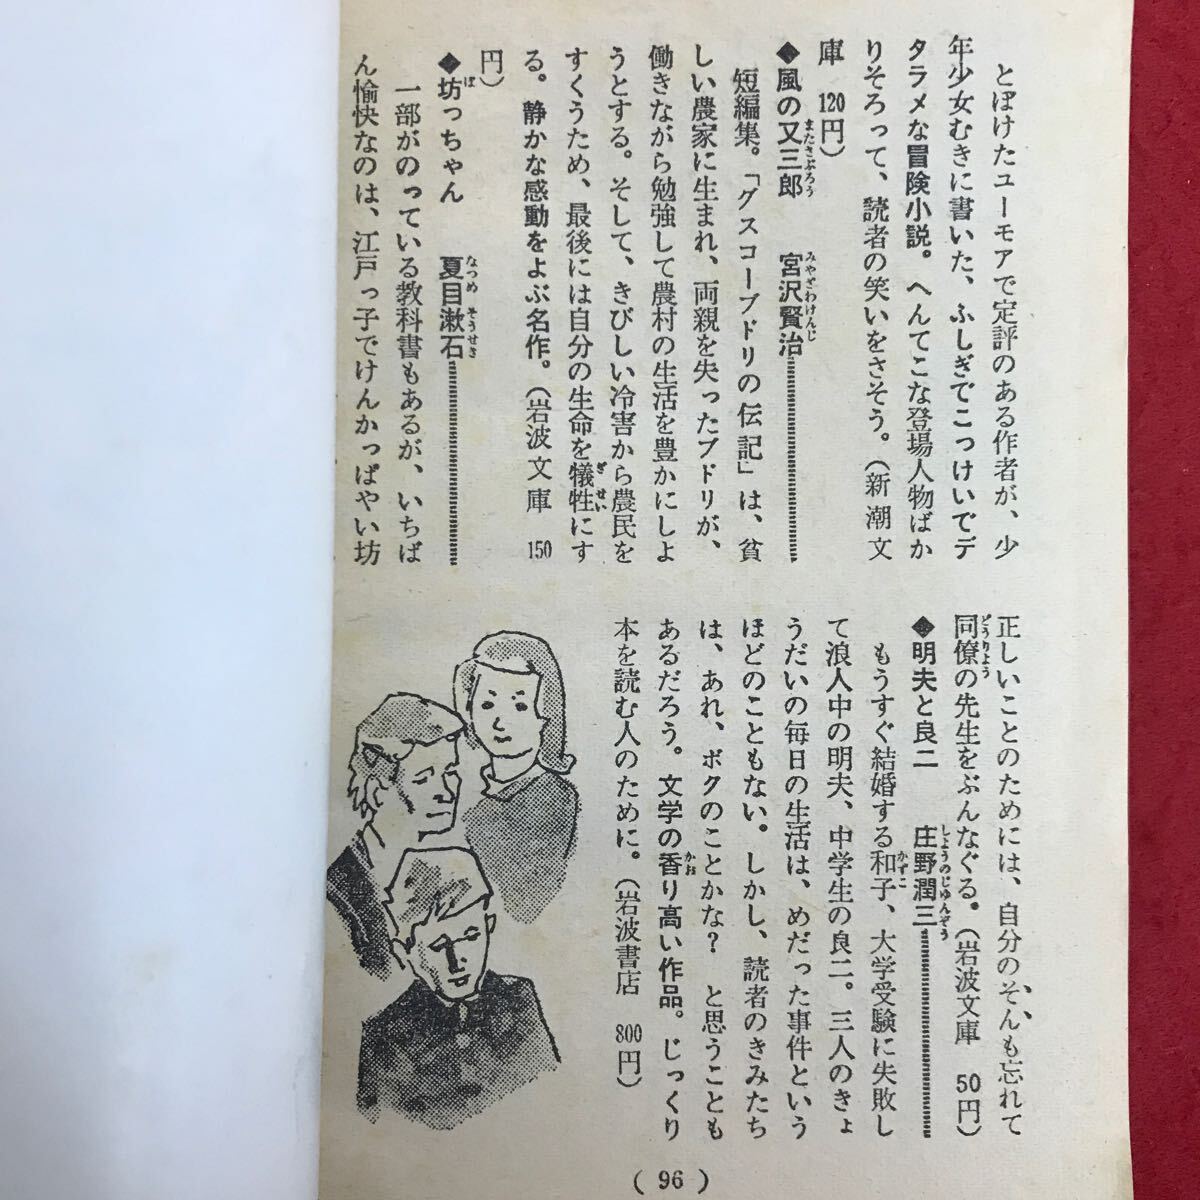 とぼけたユーモアで定評のある作者が、少
年少女むきに書いた、ふしぎでこっけいでデ
タラメな冒険小説。へんてこな登場人物ばか
りそろって、読者の笑いをさそう。（新潮文
庫　120円）
◆風の又三郎　宮沢賢治
またさぶろう　みやざわけんじ
短編集。「グスコーブドリの伝記」は、貧
しい農家に生まれ、両親を失ったブドリが、
働きながら勉強して農村の生活を豊かにしよ
うとする。そして、きびしい冷害から農民を
すくうため、最後には自分の生命を犠牲にす
ぎせい
る。静かな感動をよぶ名作。（岩波文庫　150
円）
◆坊っちゃん　夏目漱石
ぼ　なつめ　そうせき
一部がのっている教科書もあるが、いちば
ん愉快なのは、江戸っ子でけんかっぱやい坊
正しいことのためには、自分のそんも忘れて
同僚の先生をぶんなぐる。（岩波文庫　50円）
どうりょう
◆明夫と良二　庄野潤三
しょうのじゅんぞう
もうすぐ結婚する和子、大学受験に失敗し
かずこ
て浪人中の明夫、中学生の良二。三人のきょ
うだいの毎日の生活は、めだった事件という
ほどのこともない。しかし、読者のきみたち
は、あれ、ボクのことかな？　と思うことも
あるだろう。文学の香り高い作品。じっくり
かお
本を読む人のために。（岩波書店　800円）
（96）